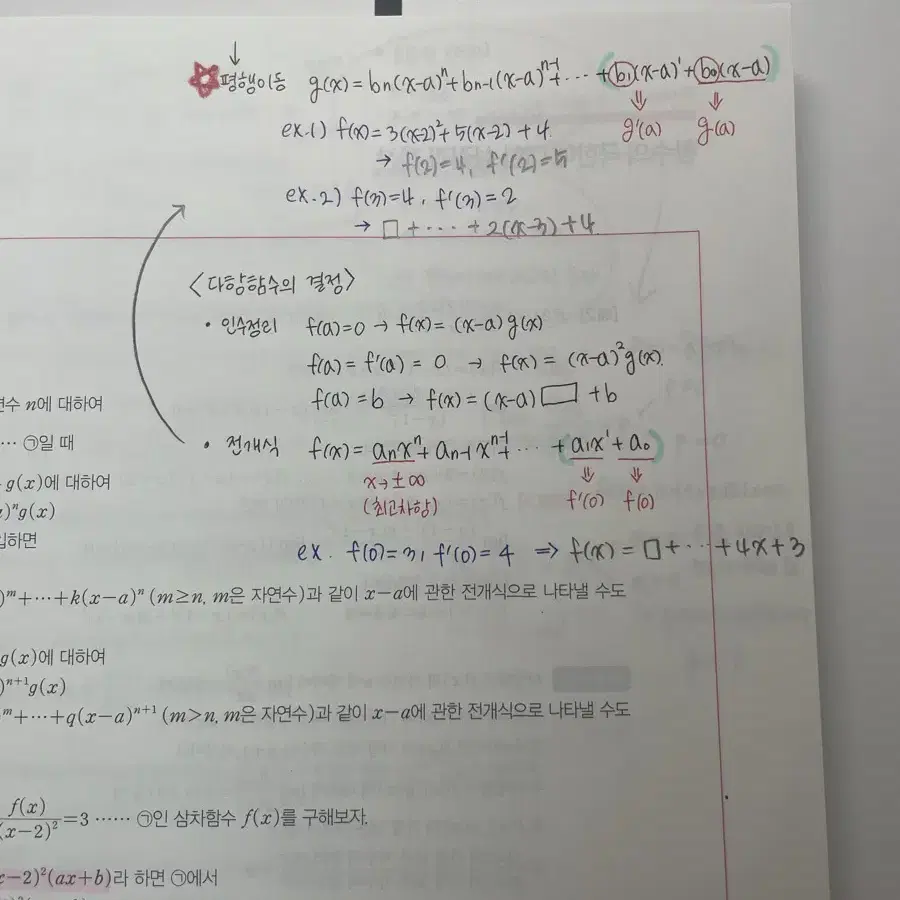 평행이동 g(x) = bn(x-a)^n + bn-1(x-a)^n-1 + ⋯ + b1(x-a)^1 + b0(x-a)
g'(a) g(a)
ex.1) f(x) = 3(x-2)² + 5(x-2) + 4
→ f(2) = 4, f'(2) = 5
ex.2) f(3) = 4, f'(3) = 2
→ □ + ⋯ + 2(x-3) + 4
<다항함수의 결정>
• 인수정리 f(a) = 0 → f(x) = (x-a) g(x)
f(a) = f'(a) = 0 → f(x) = (x-a)² g(x).
f(a) = b → f(x) = (x-a) □ + b
• 전개식 f(x) = anx^n + an-1x^n-1 + ⋯ + a1x^1 + a0
x → ±∞ ⇓ ⇓
(최고차항) f'(0) f(0)
ex. f(0) = 3, f'(0) = 4 ⇒ f(x) = □ + ⋯ + 4x + 3
n에 대하여
⋯ ㉠일 때
g(x)에 대하여
)^n g(x)
하면
)^m+⋯+k(x-a)^n (m≥n, m은 자연수)과 같이 x-a에 관한 전개식으로 나타낼 수도
g(x)에 대하여
)^n+1 g(x)
^m+⋯+q(x-a)^n+1 (m>n, m은 자연수)과 같이 x-a에 관한 전개식으로 나타낼 수도
f(x)/(x-2)²=3 ⋯⋯ ㉠인 삼차함수 f(x)를 구해보자.
x-2)²(ax+b)라 하면 ㉠에서